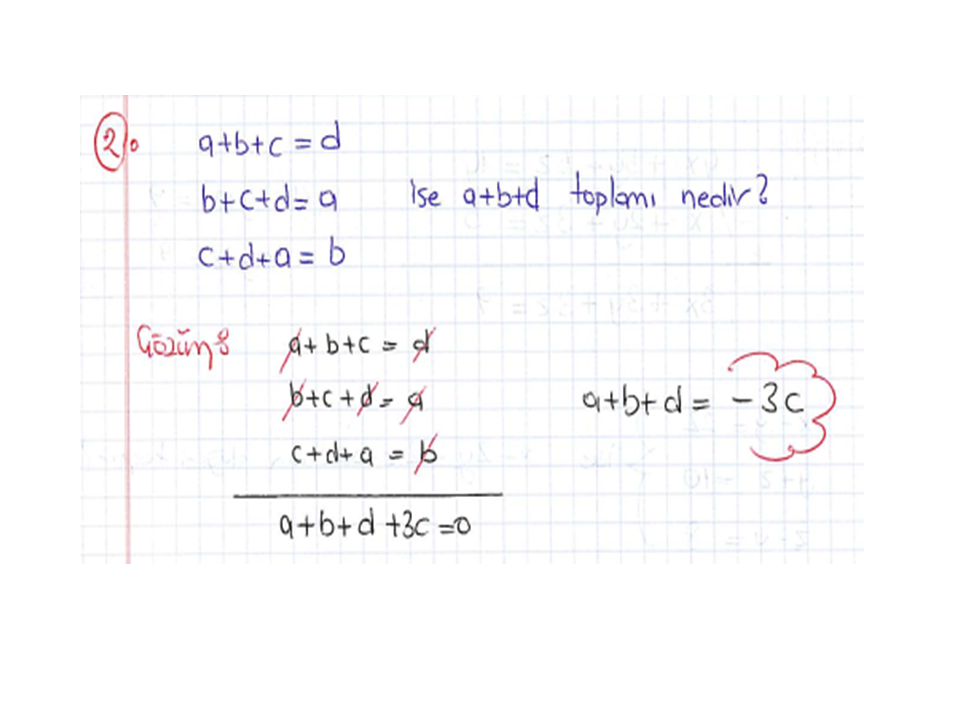 2. a+b+c = d
b+c+d = a ise a+b+d toplamı nedir?
c+d+a = b
Çözüm:
a+b+c = d
b+c+d = a
c+d+a = b
a+b+d+3c=0
a+b+d = -3c